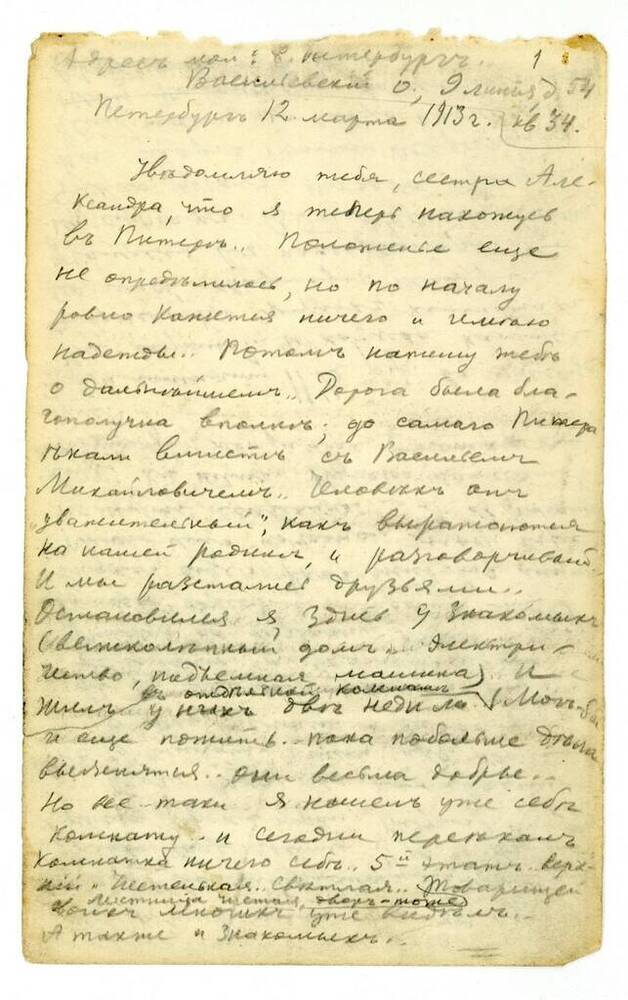 Адресъ мой: С. Петербургъ. 1
Васильевскiй о, 9 линiя, д. 54
Петербургъ 12 марта 1913 г. кв 34.
Увѣдомляю тебя, сестра Але-
ксандра, что я теперь нахожусь
въ Питерѣ.. Положенье еще
не опредѣлилось, но по началу
ровно кажется ничего и имѣю
надежды.. Потомъ напишу тебѣ
о дальнѣйшемъ.. Дорога была бла-
гополучна вполнѣ; до самаго Питера
ѣхали вмѣстѣ съ Василiемъ
Михайловичемъ.. Человѣкъ онъ
„уважительный", какъ выражаются
на нашей родинѣ, и разговорчивый..
И мы разстались друзьями..
Остановился я здѣсь у знакомыхъ
(великолѣпный домъ.. электри-
чество, подъемная машина).. И
въ отдѣльной комнатѣ
жилъ у нихъ двѣ недѣли
и еще пожить.. пока побольше дѣла
выяснятся.. они весьма добры..
Но все-таки я нашелъ уже себѣ
комнату.. и сегодня переѣхалъ
Комнатка ничего себѣ.. 5й этажъ верх-
нiй.. Чистенькая.. свѣтлая.. Товарищей
лѣстница чистая, дверь-тоже
своихъ многихъ уже видѣлъ..
А также и знакомыхъ..